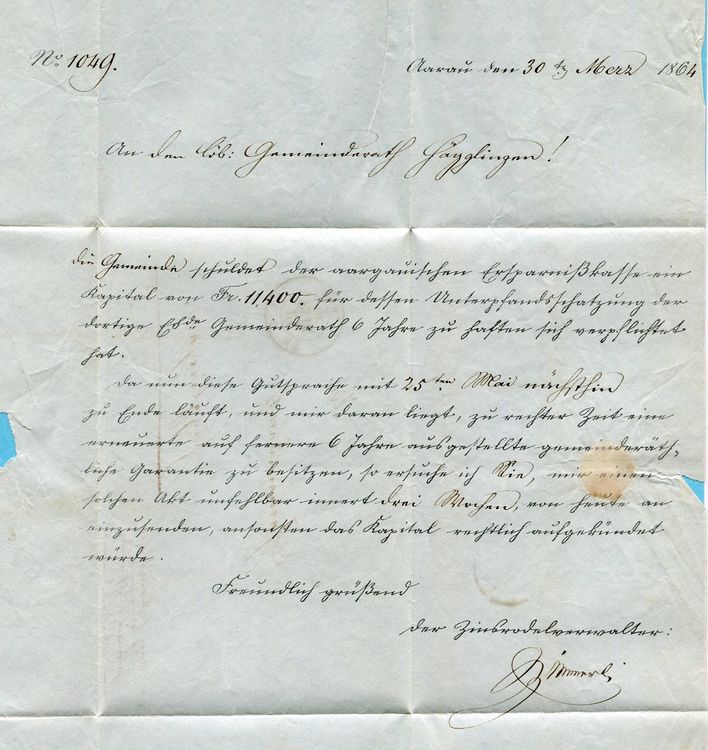 No 1049.
Aarau den 30 tz Merz 1864
An den löb: Gemeinderath Hägglingen!
die Gemeinde schuldet der aargauischen Ersparnißkasse ein
Kapital von Fr. 11400. für dessen Unterpfandsschatzung der
dortige Gemeinderath 6 Jahre zu haften sich verpflichtet
hat.
Da nun diese Gutsprache mit 25ten Mai nächsthin
zu Ende läuft, und mir daran liegt, zu rechter Zeit eine
erneuerte auf fernere 6 Jahre ausgestellte gemeinderäth-
liche Garantie zu besitzen, so ersuche ich Sie, mir einen
solchen Akt unfehlbar innert drei Wochen, von heute an
einzusenden, ansonsten das Kapital rechtlich aufgekündet
würde.
Freundlich grüßend
der Zinsrodelverwalter: